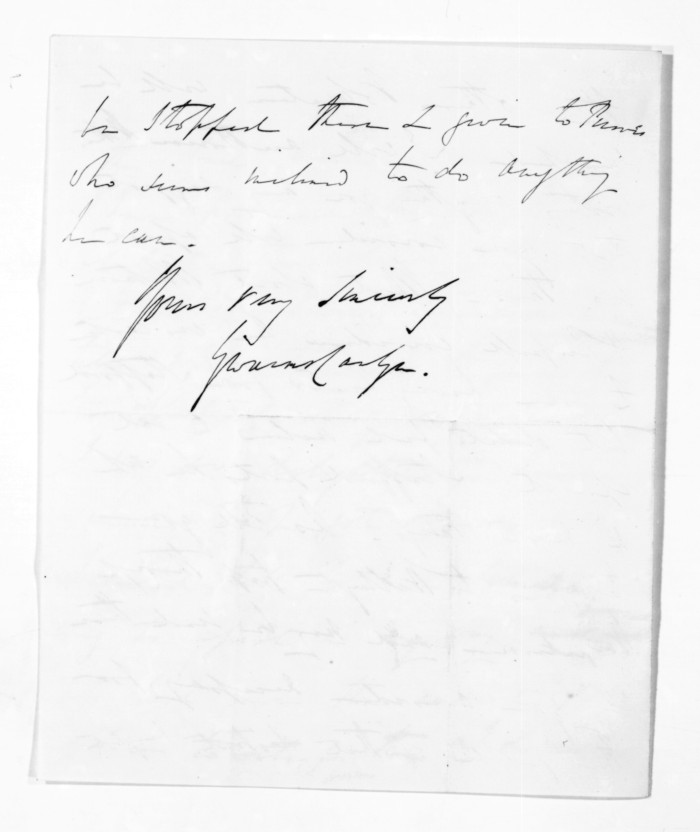 be stopped there & given to Purves
who seems inclined to do anything
he can.
Yours very Sincerely